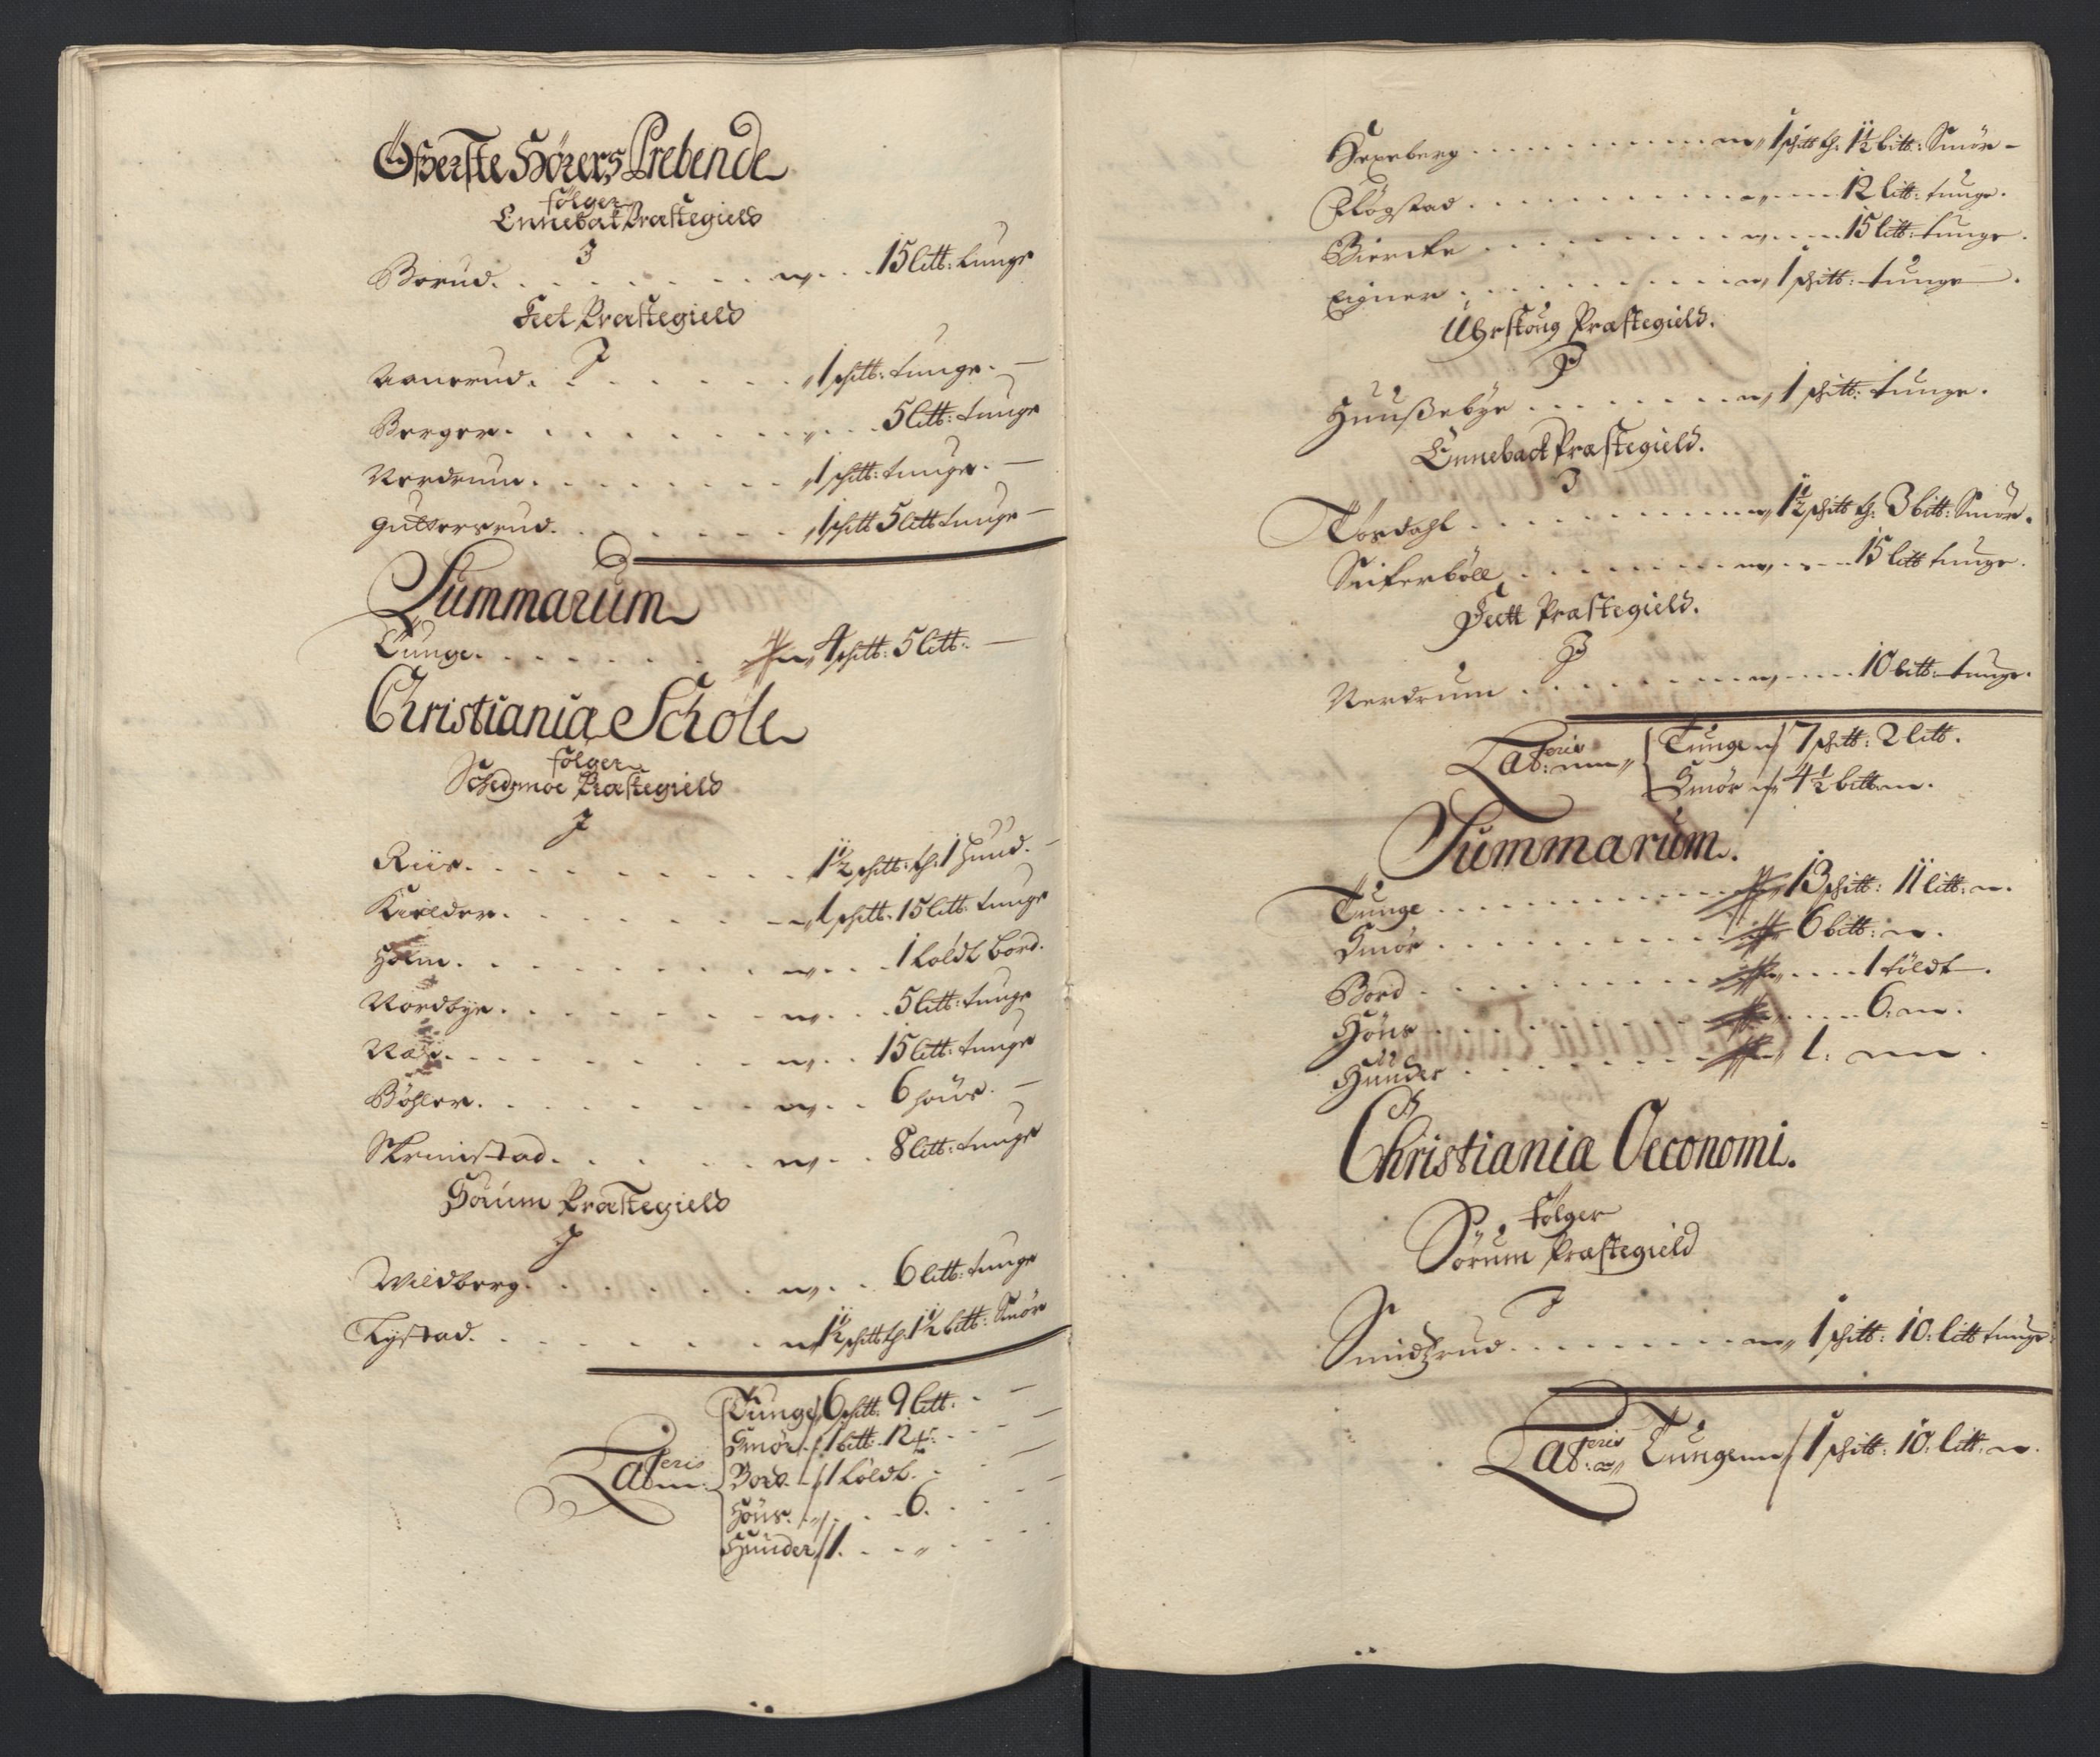 Öfverste Hörers Prebende
følger
Ennebak Præstegield
J
Borud. . . 15 litt: tunge
Feet Præstegield
J
Aanerud. . . 1 schitt: tunge.
Berger. . . 5 litt: tunge
Nerdrum. . . 1 schitt: tunge.
Guttersrud. . . 1 schitt 5 litt tunge
Summarum
Tunge. . . 4 schitt: 5 litt:
Christiania Schole
følger
Schedsmoe Præstegield
J
Riis. . . 1½ schitt: th: 1 Hund.
Kielder. . . 1 schitt. 15 litt: tunge
Holm. . . 1 toldt bord.
Nordbye. . . 5 litt: tunge
. . . 15 litt: tunge
Böhler. . . 6 höns.
Skrimstad. . . 8 litt: tunge
Sörum Præstegield
J
Wildberg. . . 6 litt: tunge
Lystad. . . 1½ schitt th: 1½ bitt: Smör
Lateris
Tunge / 6 schitt: 9 litt.
Smör / 1 bitt: 12
Bord / 1 toldt.
Höns. . . 6.
Hunder / 1.
Hexeberg . . . 1 schitt th: 1½ bitt: Smör
Flögstad . . . 12 litt: tunge.
Biercke . . . 15 litt: tunge.
Eigner . . . 1 schitt: tunge.
Uhrskoug Præstegield.
J
Huußebye . . . 1 schitt: tunge.
Ennebach Præstegield.
J
Tosdahl . . . 1½ schitt th: 3 bitt: Smör.
Seiterböll . . . 15 litt tunge.
Feett Præstegield.
J
Nerdrum . . . 10 litt: tunge.
Lateris
Tunge / 7 schitt: 2 litt.
Smör / 4½ bitt
Summarum.
Tunge . . . 13 schitt: 11 litt:
Smör . . . 6 bitt:
Bord . . . 1 töldt.
Höns . . . 6.
Hunder . . . 1:
Christiania Oeconomi.
følger
Sörum Præstegield
J
Smidzrud . . . 1 schitt: 10: litt tunge
Lateris Tunge / 1 schitt: 10: litt: